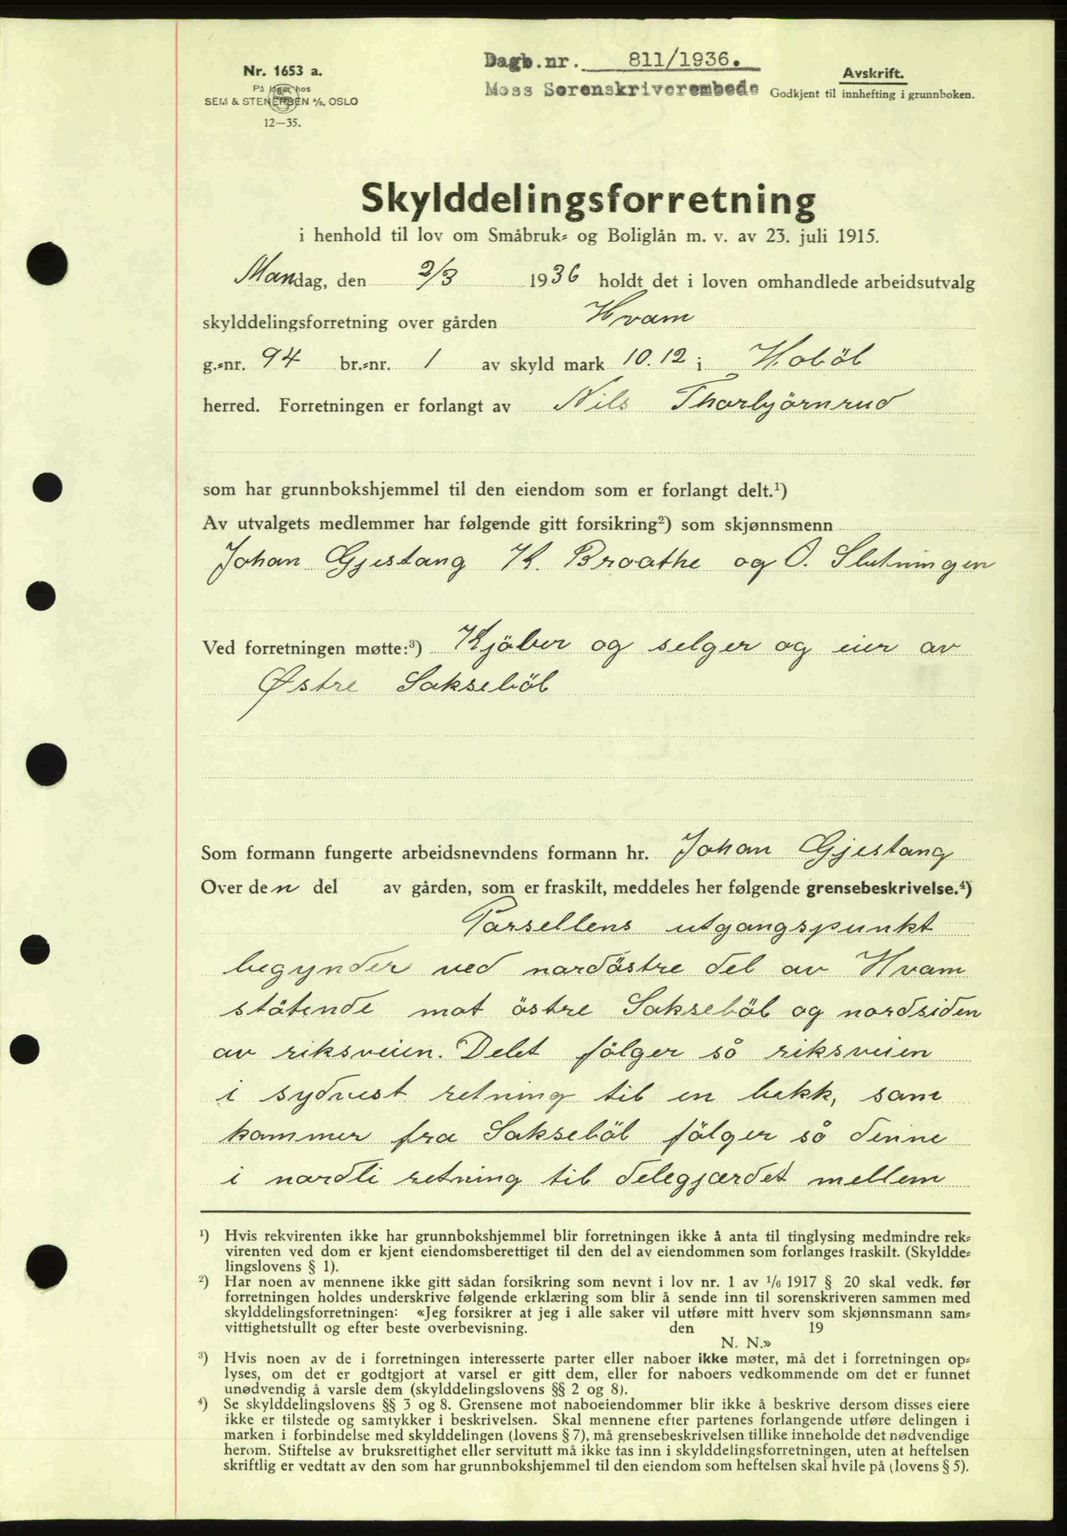 Nr. 1653 a.
På lager hos
SEM & STENERSEN A/S. OSLO
12—35.
Dagb.nr. 811/1936.
Moss Sorenskriverembede
Avskrift.
Godkjent til innhefting i grunnboken.
Skylddelingsforretning
i henhold til lov om Småbruk- og Boliglån m. v. av 23. juli 1915.
Mandag, den 2/3 1936 holdt det i loven omhandlede arbeidsutvalg
skylddelingsforretning over gården Hvam
g.-nr. 94 br.-nr. 1 av skyld mark 10.12 i Hobøl
herred. Forretningen er forlangt av Nils Thorbjörnrud
som har grunnbokshjemmel til den eiendom som er forlangt delt.¹)
Av utvalgets medlemmer har følgende gitt forsikring²) som skjønnsmenn
Johan Gjestang K. Braathe og O. Slutningen
Ved forretningen møtte:³) Kjöber og selger og eier av
Østre Sakseböl
Som formann fungerte arbeidsnevndens formann hr. Johan Gjestang
Over den del av gården, som er fraskilt, meddeles her følgende grensebeskrivelse.⁴)
Parsellens utgangspunkt
begynder ved nordöstre del av Hvam
stötende mot östre Sakseböl og nordsiden
av riksveien. Delet fölger så riksveien
i sydvest retning til en bekk, som
kommer fra Sakseböl fölger så denne
i nordli retning til delegjærdet mellem
¹) Hvis rekvirenten ikke har grunnbokshjemmel blir forretningen ikke å anta til tinglysing medmindre rek-
virenten ved dom er kjent eiendomsberettiget til den del av eiendommen som forlanges fraskilt. (Skyldde-
lingslovens § 1).
²) Har noen av mennene ikke gitt sådan forsikring som nevnt i lov nr. 1 av 1/6 1917 § 20 skal vedk. før
forretningen holdes underskrive følgende erklæring som blir å sende inn til sorenskriveren sammen med
skylddelingsforretningen: «Jeg forsikrer at jeg i alle saker vil utføre mitt hverv som skjønnsmann sam-
vittighetsfullt og efter beste overbevisning. den 19
N. N.»
³) Hvis noen av de i forretningen interesserte parter eller naboer ikke møter, må det i forretningen op-
lyses, om det er godtgjort at varsel er gitt dem, eller for naboers vedkommende om det er funnet
unødvendig å varsle dem (skylddelingslovens §§ 2 og 8).
⁴) Se skylddelingslovens §§ 3 og 8. Grensene mot naboeiendommer blir ikke å beskrive dersom disses eiere
ikke er tilstede og samtykker i beskrivelsen. Skal mennene efter partenes forlangende utføre delingen i
marken i forbindelse med skylddelingen (lovens § 7), må grensebeskrivelsen tillike inneholde det nødvendige
herom. Stiftelse av bruksrettighet eller servitutt må ikke tas inn i skylddelingsforretningen, uten at heftelsen
skriftlig er vedtatt av den som har grunnbokshjemmel til den eiendom som heftelsen skal hvile på (lovens § 5).